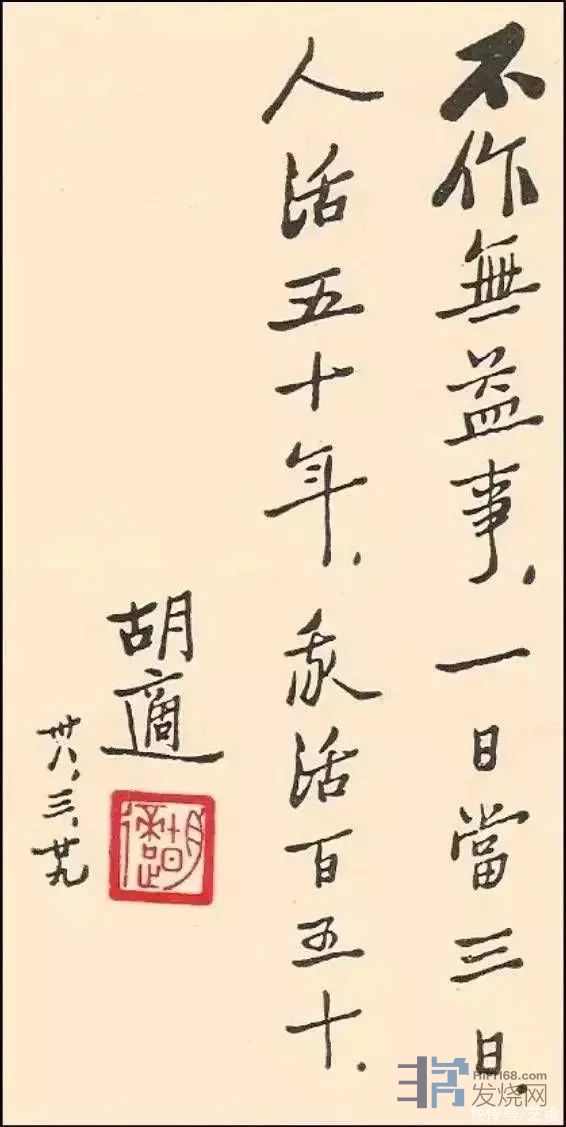 不作無益事，一日當三日。
人活五十年，我活百五十。
胡適
卅八，三，廿九
胡適
HIFI168.com
发烧网
快传号/艺道